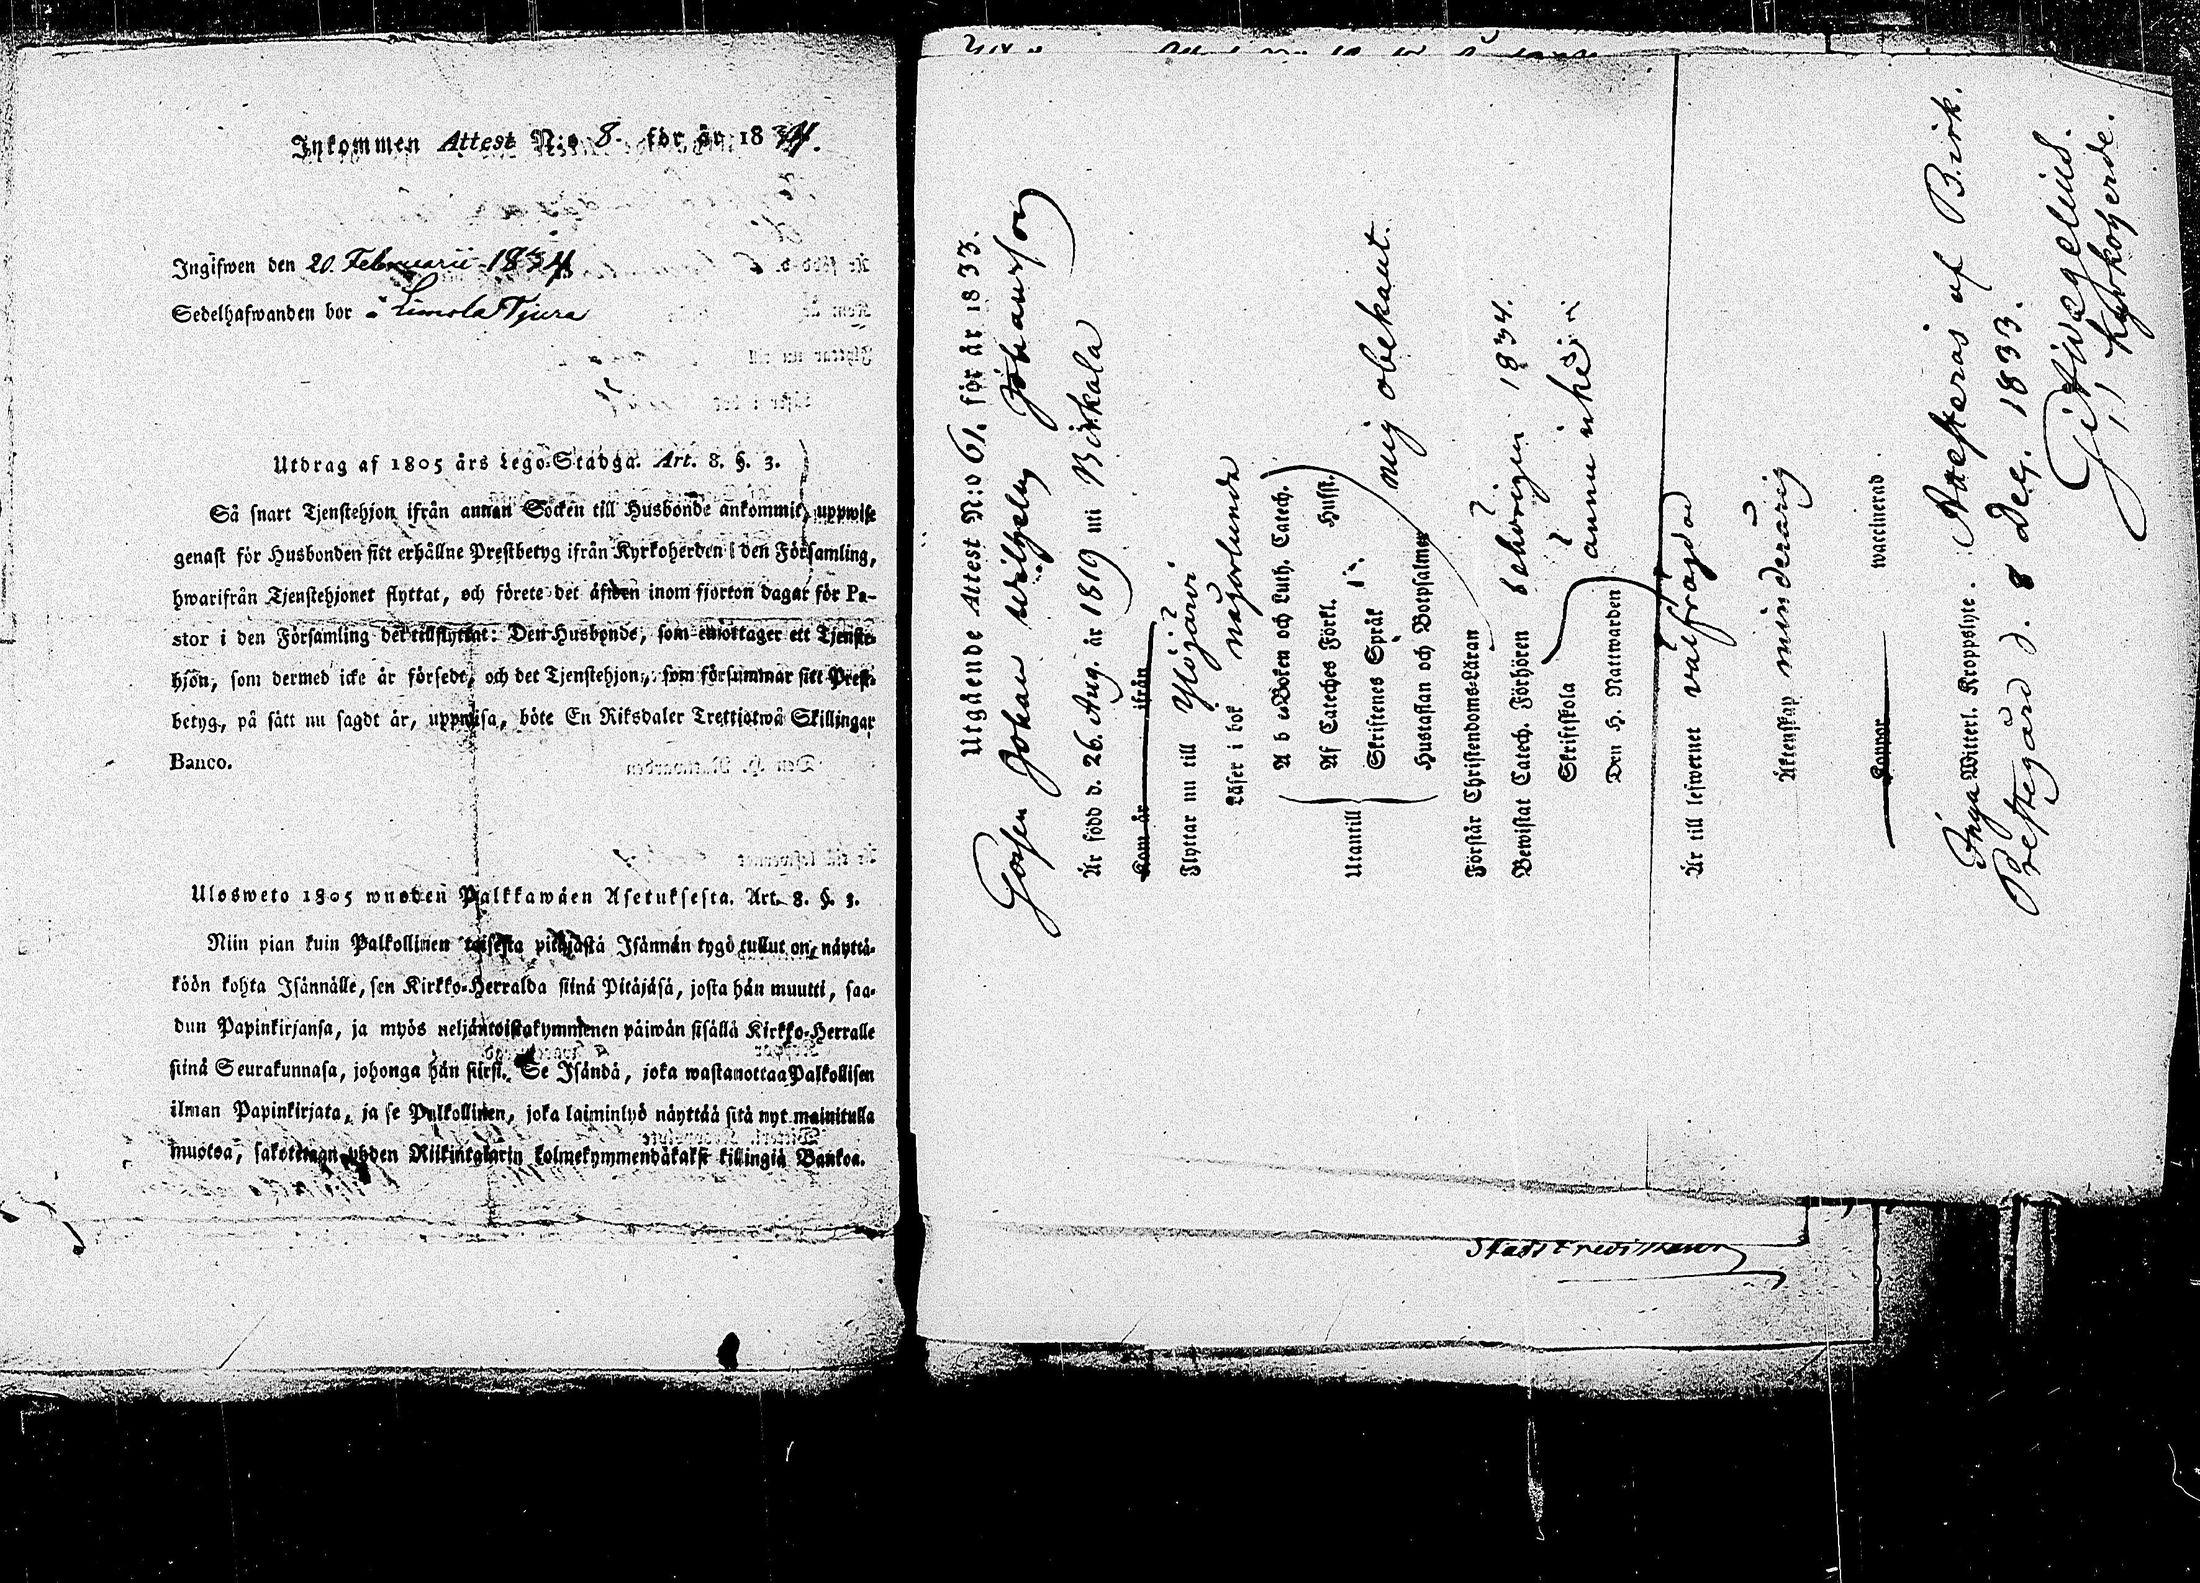 Inkommen Attest N:o 8. för år 1834.
Ingifwen den 20. Februarii 1834
Sedelhafwanden bor i Limola Tjura
Utdrag af 1805 års Lego-Stadga. Art. 8. §. 3.
Så snart Tjenstehjon ifrån annan Socken till Husbonde ankommit, uppwise
genast för Husbonden sitt erhållne Prestbetyg ifrån Kyrkoherden i den Församling,
hwarifrån Tjenstehjonet flyttat, och förete det äfwen inom fjorton dagar för Pa-
stor i den Församling det tillflyttat: Den Husbonde, som emottager ett Tjenste-
hjon, som dermed icke är försedt, och det Tjenstehjon, som försummar sitt Prest-
betyg, på sätt nu sagdt är, uppwisa, böte En Riksdaler Trettiotwå Skillingar
Banco.
Ulosweto 1805 wuoden Palkkawäen Asetuksesta. Art. 8. §. 3.
Niin pian kuin Palkollinen toisesta pitäjästä Isännän tygö tullut on, näyttä-
köön kohta Isännälle, sen Kirkko-Herralda siinä Pitäjäsä, josta hän muutti, saa-
dun Papinkirjansa, ja myös neljäntoistakymmenen päiwän sisällä Kirkko-Herralle
siinä Seurakunnasa, johonga hän siirsi. Se Isändä, joka wastanottaa Palkollisen
ilman Papinkirjata, ja se Palkollinen, joka laiminlyö näyttää sitä nyt mainitulla
muotoa, sakotetaan yhden Riikintalarin kolmekymmendäkaksi killingiä Bankoa.
Utgående Attest N:o 61. för år 1833.
Gossen Johan Wilhelm Johansson
Är född d. 26. Aug. år 1819 uti Birkala
Kom år ifrån
Flyttar nu till Ylöjärvi
Läser i bok någorlunda
Utantill
A b c-Boken och Luth. Catech.
Af Cateches Förkl. Hussf.
Skriftenes Språk
Hustaflan och Botpsalmer
mig obekant.
Förstår Christendoms-Läran
Bewistat Catech. Förhören behörigen 1834.
Skriftskola
Den H. Nattwarden
ännu icke
Är till lefwernet välfrägdad
Äktenskap minderårig
Koppor waccinerad
Inga Witterl. Kroppslyte. Attesteras af Birk.
Prestegård d. 8 Dec. 1833.
Kyrkoherde.